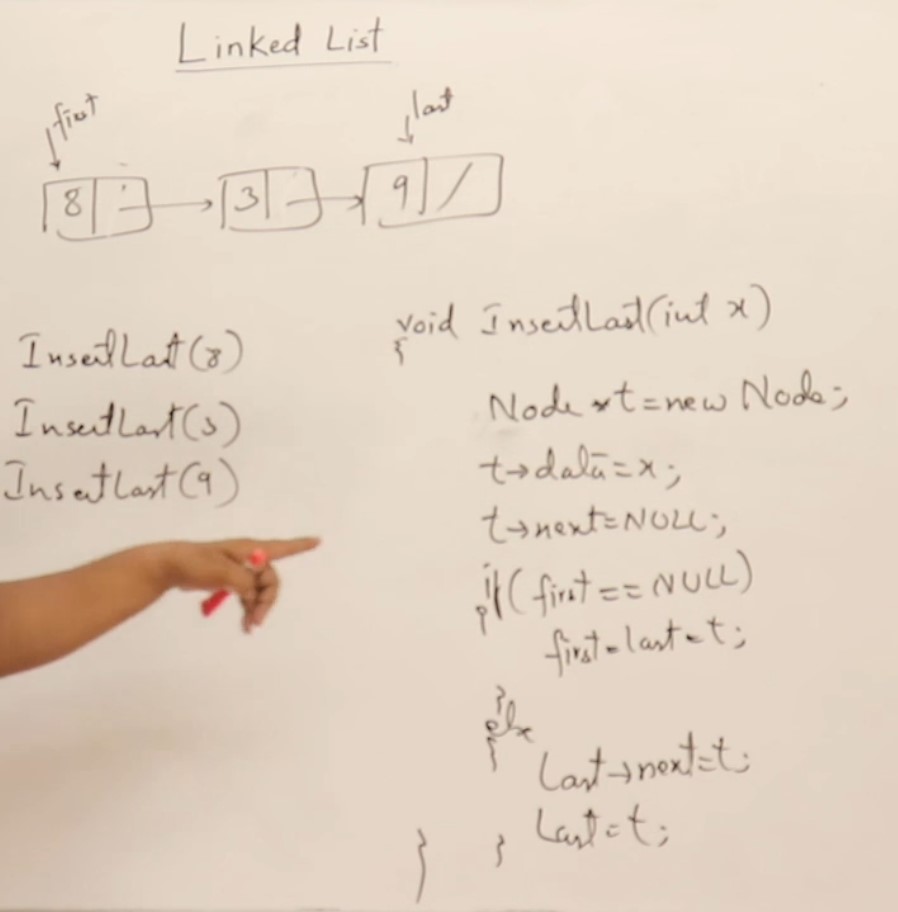 Linked List
first
last
8
3
9 /
InsertLast(8)
InsertLast(3)
InsertLast(9)
void InsertLast(int x)
{
Node *t=new Node;
t→data=x;
t→next=NULL;
if(first==NULL)
{
first=last=t;
}
else
{
Last→next=t;
Last=t;
}
}